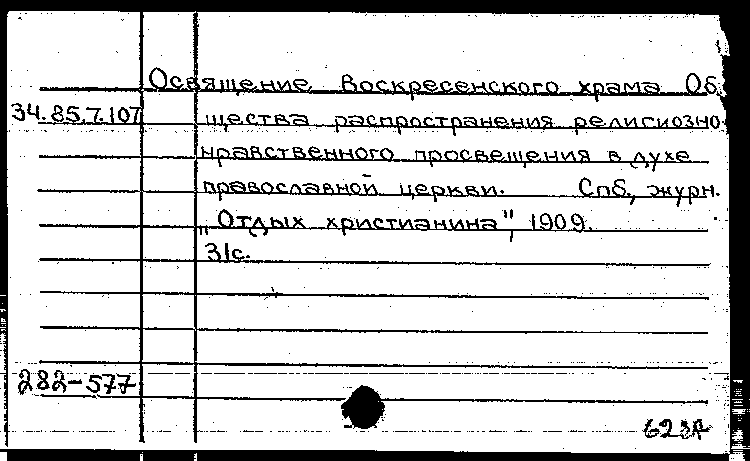 Освящение Воскресенского храма Об
34.85.7.107 щества распространения религиозно-
нравственного просвещения в духе
православной церкви. Спб., журн.
„Отдых христианина", 1909.
31с.
282-577